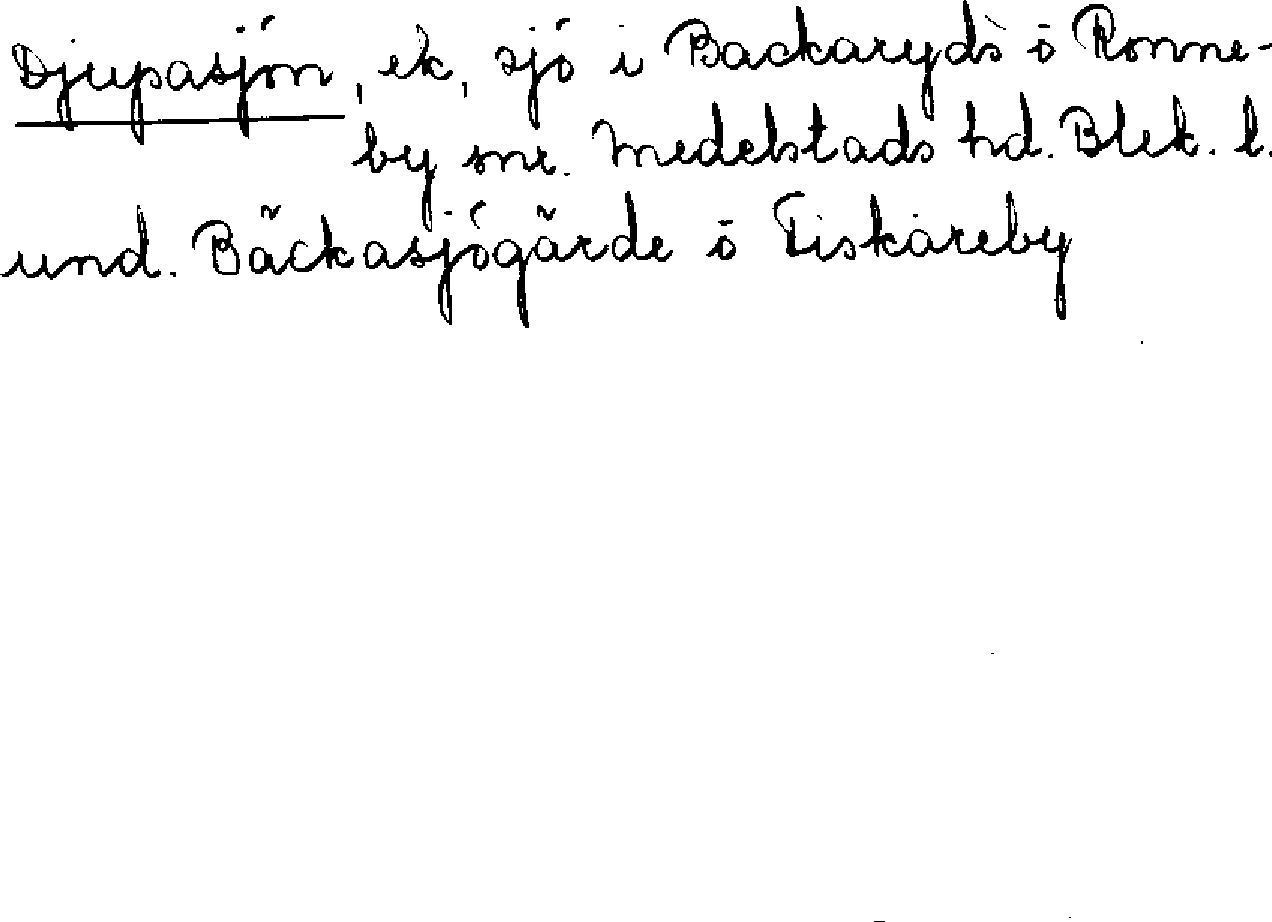 Djupasjön, ek, sjö i Backaryds o Ronne-
by snr. Medelstads hd. Blek. l.
und. Bäckasjögärde o Fiskareby